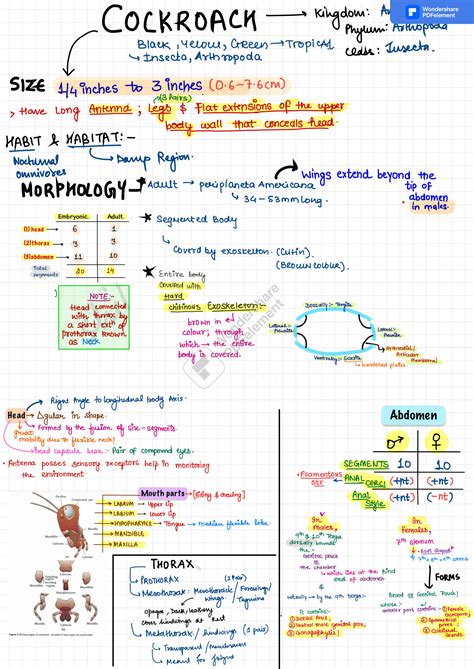 Wondershare
PDFelement
COCKROACH
Kingdom:
Phylum: Arthropoda
Class: Insecta.
Black, Yellow, Green → Tropical
Insecta, Arthropoda
SIZE 1/4 inches to 3 inches (0.6-7.6cm)
(3 Pairs)
> Have Long Antenna, Legs & Flat extensions of the upper
body wall that conceals head.
HABIT & HABITAT:-
Nocturnal
omnivores
Damp Region.
MORPHOLOGY
Adult → periplaneta Americana
34-53mm long.
Wings extend beyond the
tip of
abdomen
in males.
Embryonic. Adult.
(1) head 6 1
(2) thorax 3 3
(3) abdomen 11 10
Total
segments 20 14
Segmented Body
Coverd by exoskeleton. (Cutin).
(BROWN COLOUR).
NOTE:-
Head connected
with thorax by
a short extn of
prothorax known
as Neck
Entire body
Covered with
Hard
chitinous Exoskeleton:-
brown in
colour; through
which → the entire
body is covered.
Dorsally:- Tergite
Lateral:-
Pleurite
Lateral:-
Pleurite
Arthrodial/
Articular
membrane
Ventrally:-
Wondershare
PDFelement
Right Angle to longitudinal body Axis.
Head → Δgular in shape.
Formed by the fusion of six-segments.
great
mobility due to flexible neck!
head capsule bears:- Pair of compound eyes.
• Antenna posses sensory receptors help in monitoring
the environment
Mouth parts → [Biting & chewing]
LABRUM → Upper lip
LABIUM → Lower lip
HYPOPHARYNX → Tongue → median flexible lobe
MANDIBLE
MAXILLA
THORAX
PROTHORAX (1 Pair)
Mesothorax: Mesothoracic / Forewings /
wings Tegmina
opaque, dark, leathery
cover hindwings at rest
Metathorax / hindwings (1 pair)
Transparent / membranous
Meant for
Abdomen
♂ ♀
SEGMENTS 10 10
Filamentous
str ANAL
CERCI (+nt) (+nt)
Anal
Style (+nt) (-nt)
In
males,
9th & 10th Terga
dorsally bound
the
Genital pouch
or
the chamber
which lies at the hind
end of abdomen
ventrally → by the 9th sternum.
it contains:-
① Dorsal Anus,
② Ventral male genital pore,
③ Gonapophysis
In
females,
7th sternum
FORMS
Brood or Genital Pouch!
whose
anterior part contains:-
① Female
Gonopore,
② Spermathecal
pores
③ Collaterial
Glands